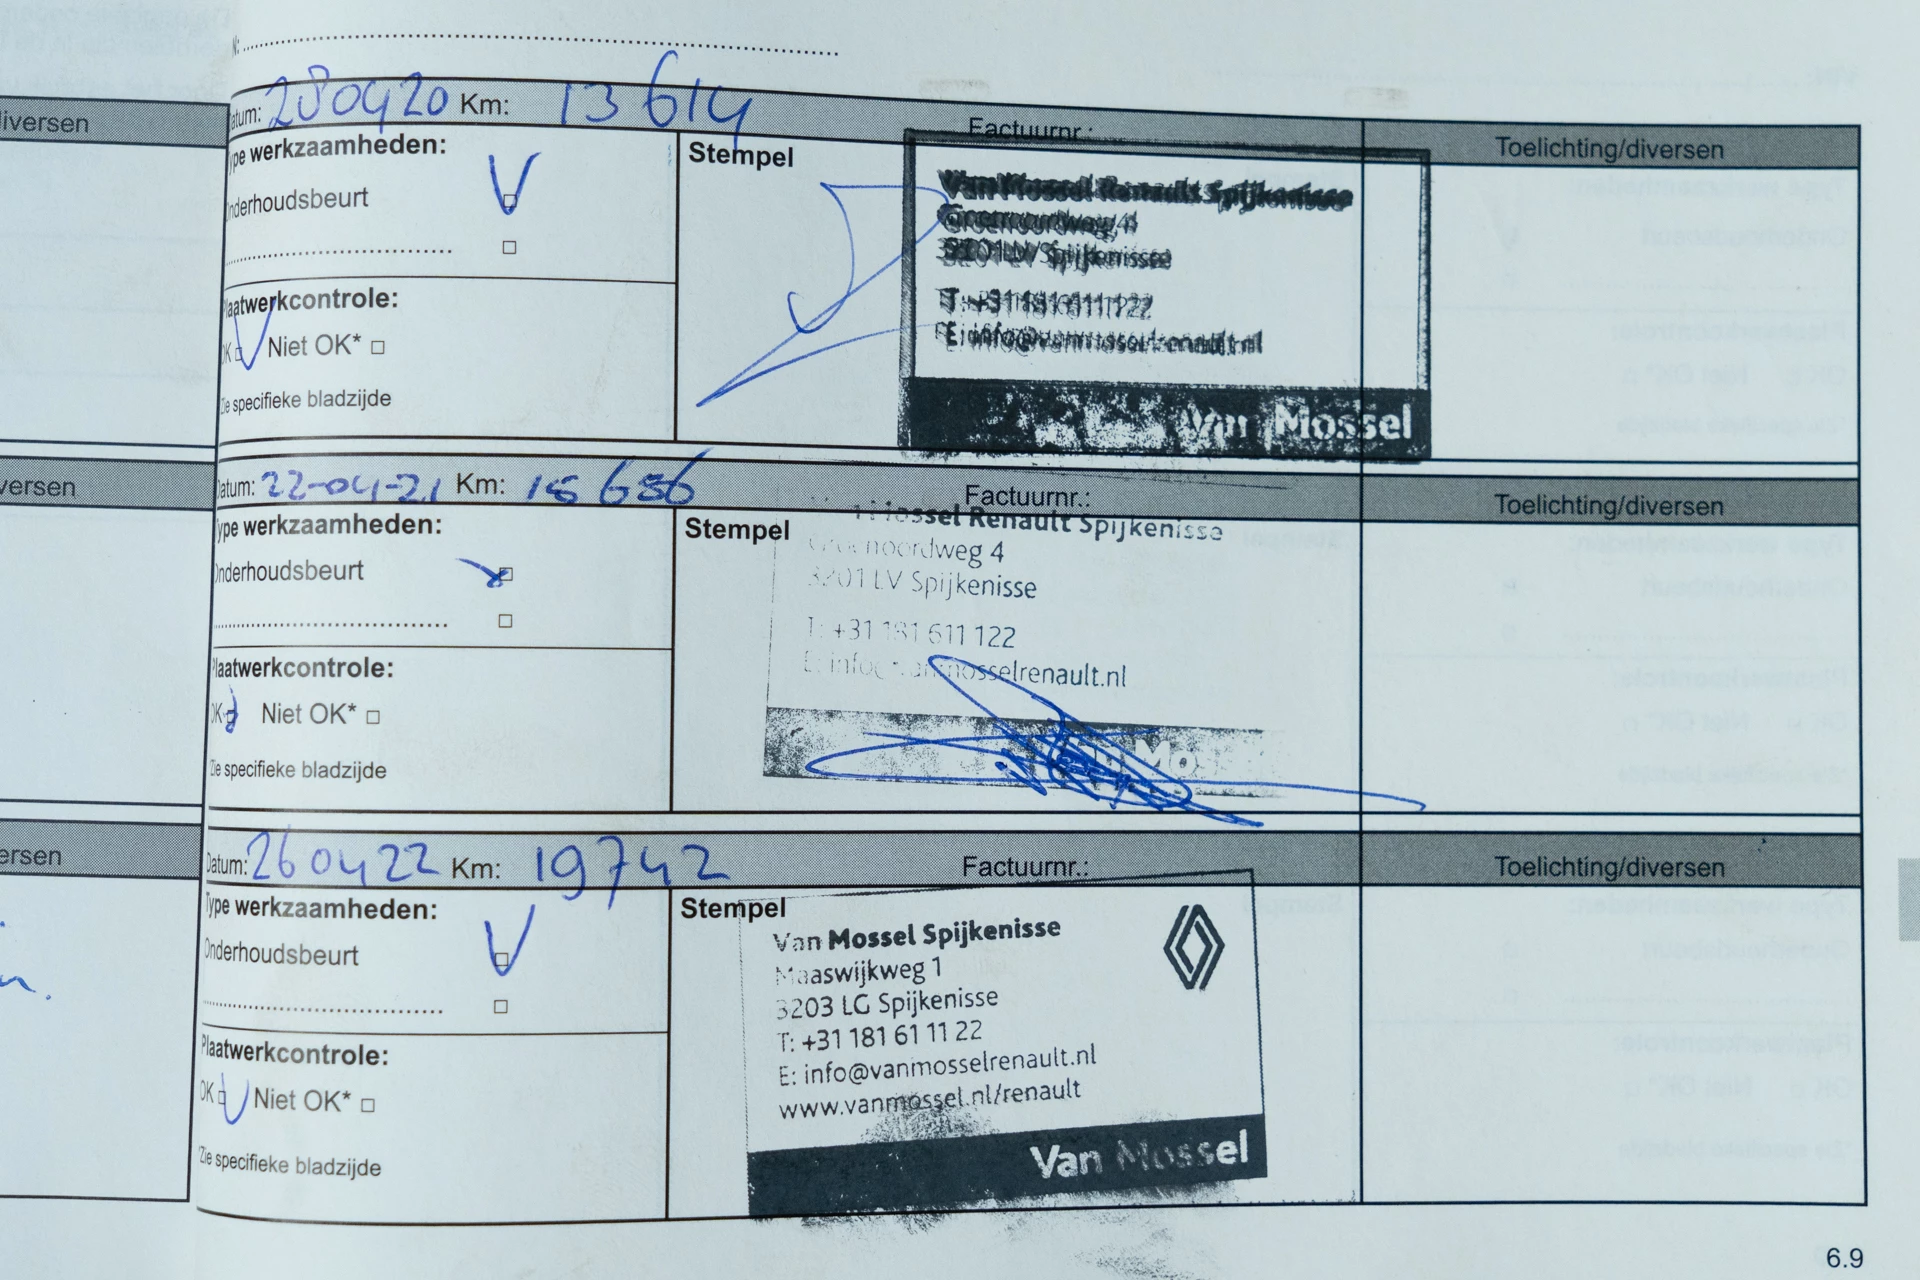 diversen
Datum: 280420 Km: 13614 Factuurnr.: Toelichting/diversen
Type werkzaamheden:
Onderhoudsbeurt
Plaatwerkcontrole:
OK Niet OK*
*Zie specifieke bladzijde
Stempel
Van Mossel Renault Spijkenisse
Groenoordweg 4
3201 LV Spijkenisse
T: +31 181 611 122
E: info@vanmosselrenault.nl
Van Mossel
versen
Datum: 22-04-21 Km: 15656 Factuurnr.: Toelichting/diversen
Type werkzaamheden:
Onderhoudsbeurt
Plaatwerkcontrole:
OK Niet OK*
*Zie specifieke bladzijde
Stempel
Mossel Renault Spijkenisse
Groenoordweg 4
3201 LV Spijkenisse
T: +31 181 611 122
E: info@vanmosselrenault.nl
Van Mossel
ersen
Datum: 260422 Km: 19742 Factuurnr.: Toelichting/diversen
Type werkzaamheden:
Onderhoudsbeurt
Plaatwerkcontrole:
OK Niet OK*
*Zie specifieke bladzijde
Stempel
Van Mossel Spijkenisse
Maaswijkweg 1
3203 LG Spijkenisse
T: +31 181 61 11 22
E: info@vanmosselrenault.nl
www.vanmossel.nl/renault
Van Mossel
6.9